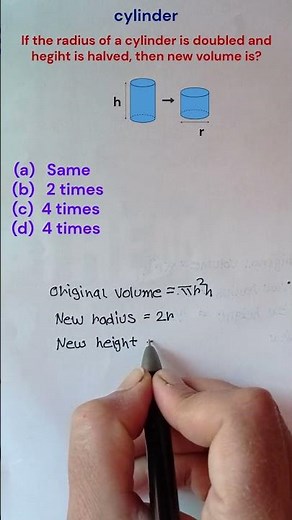 cylinder
If the radius of a cylinder is doubled and
hegiht is halved, then new volume is?
h
r
(a) Same
(b) 2 times
(c) 4 times
(d) 4 times
Original volume = πr²h
New radius = 2r
New height